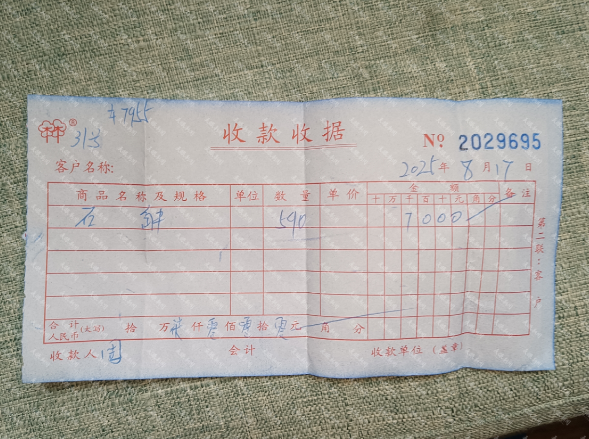 收款收据
No 2029695
客户名称:
2025年 8月17日
商品名称及规格 单位 数量 单价 金额 备注
十 万 千 百 十 元 角 分
石 540 7000
第二联:客户
合计人民币(大写) 拾 万 柒 仟 零 佰 零 拾 零 元 角 分
收款人 会计 收款单位(盖章)